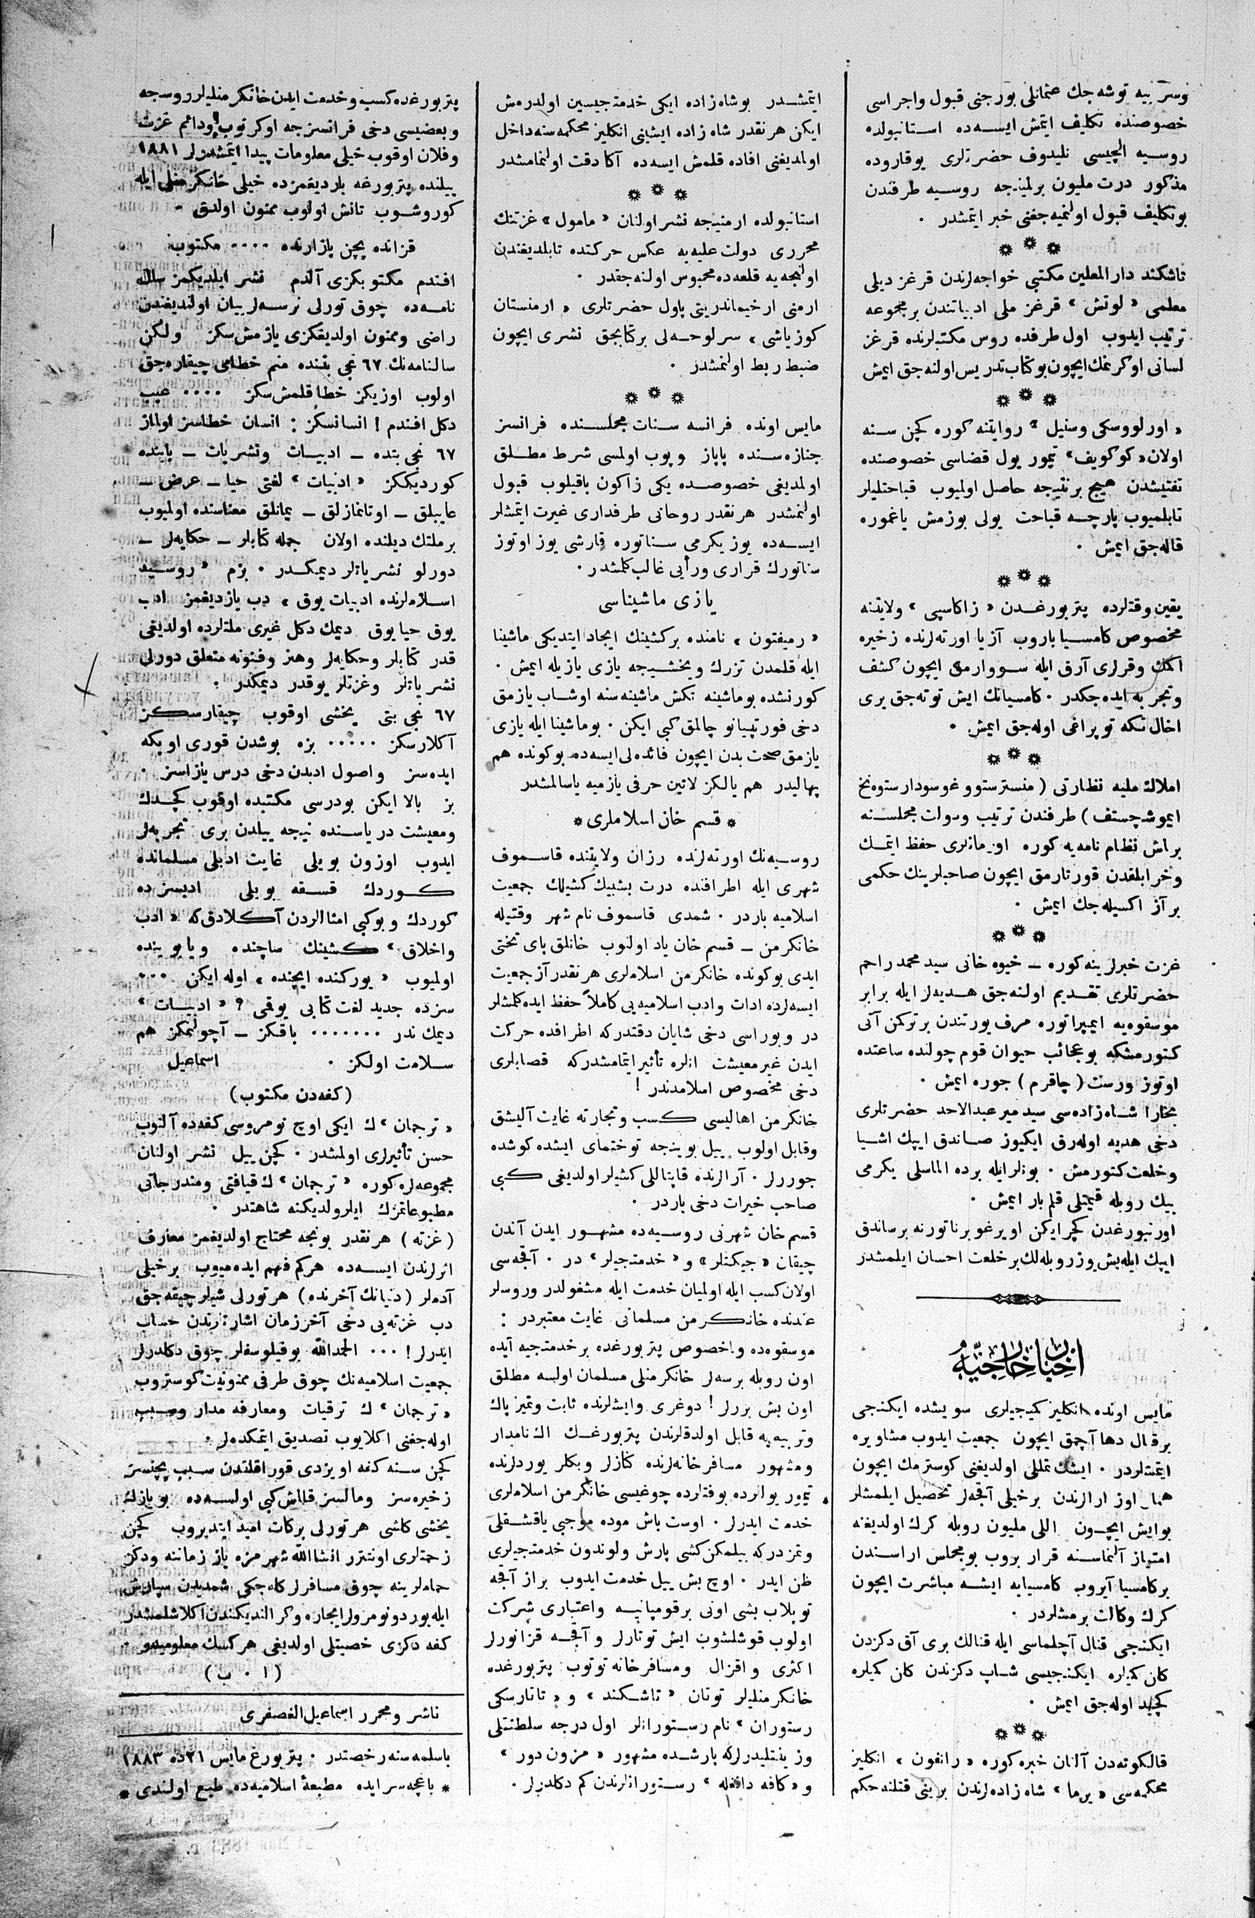 وسربیه توشه‌جك عثمانلی بورجنی قبول واجراسی
خصوصنده تكلیف ایتمش ایسه‌ده استانبولده
روسیه ایلچیسی نلیدوف حضرتلری یوقاروده
مذكور درت ملیون برلمینجه روسیه طرفندن
بوتكلیف قبول اولنمیه‌جغنی خبر ایتمشدر .
تاشكند دارالمعلمین مكتبی خواجه‌لرندن قرغز دیلی
معلمی « لوتش » قرغز ملی ادبیاتندن برمجموعه
ترتیب ایدوب اول طرفده روس مكتبلرنده قرغز
لسانی اوكرنمك ایچون بوكتاب تدریس اولنه‌جق ایمش
« اورلووسكی وسنیل » روایتنه كوره كچن سنه
اولان « كوكویف » تیمور یول قضاسی خصوصنده
تفتیشدن هیچ برنتیجه حاصل اولمیوب قباحتلیلر
تابلمیوب پارچه قباحت یولی بوزمش یاغموره
قاله‌جق ایمش .
یقین وقتلرده پتربورغدن « زاكاسپی » ولایتنه
مخصوص كامسیا باروب آزیا اورته‌لرنده زخیره
اكمك وقرلری آرق ایله سووارمق ایچون كشف
وتجربه ایده‌جكدر . كامسیانك ایش توته‌جق یری
اخال تكه توپراغی اوله‌جق ایمش .
املاك ملیه نظارتی ( منسترستوو غوسودارستوه‌نخ
ایموشچستف ) طرفندن ترتیب ودولت مجلسنه
براش نظام نامه‌یه كوره اورمانلری حفظ ایتمك
وخرابلقدن قورتارمق ایچون صاحبلرینك حكمی
برآز اكسیله‌جك ایمش .
غزت خبرلرینه كوره ــ خیوه خانی سید محمد راحم
حضرتلری تقدیم اولنه‌جق هدیه‌لر ایله برابر
موسقوه‌یه ایمپراتوره مرف یورتندن برتركمن آتی
كتورمشكه بو عجائب حیوان قوم چولنده ساعتده
اوتوز ورست ( چاقرم ) جوره ایمش .
بخارا شاه‌زاده‌سی سید میر عبدالاحد حضرتلری
دخی هدیه اوله‌رق ایكیوز صاندق ایپك اشیا
وخلعت كتورمش . بونلر ایله برده الماسلی یكرمی
بیك روبله قیمتلی قلم بار ایمش .
اورنبورغدن كچرایكن اویرغوبرناتورنه برصاندق
ایپك ایله بش وزروبله‌لك برخلعت احسان ایلمشدر
اخبار خارجیه
مایس اونده انكلیز كیجیلری سویشده ایكنجی
برقنال دها آچمق ایچون جمعیت ایدوب مشاویره
ایتمشلردر . ایشك تمللی اولدیغی كوسترمك ایچون
همان اوز ارالرندن برخیلی آقچه‌لر تحصیل ایلمشلر
بوایش ایچون اللی ملیون روبله كرك اولدیغنه
امتیاز آلنماسنه قرار بروب بومجلس اراسندن
بركامسیا آیروب كامسیایه ایشه مباشرت ایچون
كرك وكالت برمشلردر .
ایكنجی قنال آچلماسی ایله قنالك بری آق دكزدن
كان كمیلره ایكنجیسی شاپ دكزندن كان كمیلره
كچید اوله‌جق ایمش .
قالكوته‌دن آلنان خبره كوره « رانغون » انكلیز
محكمه‌سی « برما » شاه زاده‌لرندن برینی قتلنه حكم
ایتمشدر بوشاه‌زاده ایكی خدمتجیسین اولدرمش
ایكن هرنقدر شاه زاده ایشینی انكلیز محكمه‌سنه داخل
اولمدیغنی افاده قلمش ایسه‌ده آكا دقت اولنمامشدر
استانبولده ارمنیجه نشر اولنان « مامول » غزتنك
محرری دولت علیه‌یه عكس حركتده تابلدیغندن
اولنجه‌یه قلعه‌ده محبوس اولنه‌جقدر .
ارمنی ارخیماندریتی پاول حضرتلری « ارمنستان
كوزیاشی » سرلوحه‌لی بركتابجق نشری ایچون
ضبط ربط اولنمشدر .
مایس اونده فرانسه سنات مجلسنده فرانسز
جنازه‌سنده پاپاز وپوپ اولمسی شرط مطلق
اولمدیغی خصوصده یكی زاكون باقیلوب قبول
اولنمشدر هرنقدر روحانی طرفداری غیرت ایتمشلر
ایسه‌ده یوز یكرمی سناتوره قارشی یوز اوتوز
سناتورك قراری ورأیی غالب كلمشدر .
یازی ماشیناسی
« رمیغتون » نامنده بركشینك ایجاد ایتدیكی ماشینا
ایله قلمدن تزرك ویخشیجه یازی یازیله ایمش .
كورنشده بوماشینه تكش ماشینه‌سنه اوشاب یازمق
دخی فورتپیانو چالمق كبی ایكن . بوماشینا ایله یازی
یازمق صحت بدن ایچون فائده‌لی ایسه‌ده بوكونده هم
پهالیدر هم یالكز لاتین حرفی یازمیه یاسالمشدر
* قسم خان اسلاملری *
روسیه‌نك اورته‌لرنده رزان ولایتنده قاسموف
شهری ایله اطرافنده درت بشبیك كشیلك جمعیت
اسلامیه باردر . شمدی قاسموف نام شهر وقتیله
خانكرمن ــ قسم خان یاد اولنوب خانلق پای تختی
ایدی بوكونده خانكرمن اسلامه‌لری هرنقدر آز جمعیت
ایسه‌لرده ادات وادب اسلامیه‌یی كاملاً حفظ ایده‌كلمشلر
در وبوراسی دخی شایان دقتدركه اطرافده حركت
ایدن غیرمعیشت انلره تأثیر ایتمامشدركه قصابلری
دخی مخصوص اسلامدندر !
خانكرمن اهالیسی كسب وتجارته غایت آلیشق
وقابل اولوب ییل بوینجه توختمای ایشده كوشده
جوررلر . آرالرنده قاپتاللی كشیلر اولدیغی كبی
صاحب خیرات دخی باردر .
قسم خان شهرنی روسیه‌ده مشهور ایدن آندن
چیقان « جیكتلر » و « خدمتجیلر » در . آقچه‌سی
اولان كسب ایله اولمیان خدمت ایله مشغولدر وروسلر
عندنده خانكرمن مسلمانی غایت معتبردر :
موسقوه‌ده وباخصوص پتربورغده برخدمتجیه آیده
اون روبله برسه‌لر خانكرمنلی مسلمان اولسه مطلق
اون بش بررلر ! دوغری وایشلرنده ثابت وتمیز پاك
وتربیه‌یه قابل اولدقلرندن پتربورغك اك نامدار
ومشهور مسافرخانه‌لرنده كنازلر وبكلر یوردلرنده
تیمور یوللرده بوفتلرده چوغیسی خانكرمن اسلامه‌لری
خدمت ایدرلر . اوست باش موده موجبی یاقشقلی
وتمزدركه بیلمگن كشی پارش ولوندون خدمتجیلری
ظن ایدر . اوچ بش ییل خدمت ایدوب براز آقچه
توپلاب بشی اونی برقومپانیه واعتباری شركت
اولوب قوشلشوب ایش توتارلر و آقچه قزانورلر
اكثری واقزال ومسافرخانه توتوب پتربورغده
خانكرمنلیلر توتان « تاشكند » و « تاتارسكی
رستوران » نام رستورانلر اول درجه سلطنتلی
وزینتلیدرلركه پارشده مشهور « مزون دور »
و « كافه دانغله » رستورانلرندن كم دكلدرلر .
پتربورغده كسب وخدمت ایدن خانكرمنلیلر روسجه
وبعضیسی دخی فرانسزجه اوكرنوب ودائم غزت
وفلان اوقوب خیلی معلومات پیدا ایتمشدرلر ١٨٨١
ییلنده پتربورغه باردیغمزده خیلی خانكرمنلی ایله
كوروشوب تانش اولوب ممنون اولدق -
قزانده پچن پازارنده .... مكتوب
افندم مكتوبكزی آلدم نشر ایلدیكمز سال
نامه‌ده چوق تورلی نرسه‌لر بیان اولندیغندن
راضی وممنون اولدیغكزی یازمش‌سكز ولكن
سالنامه‌نك ٦٧ نجی بتنده منم خطامی چیقاره‌جق
اولوب اوزیكز خطا قلمش‌سكز .... عیب
دكل افندم ! انسانسكز : انسان خطاسز اولماز
٦٧ نجی بتده ــ ادبیات ونشریات ــ بابنده
كوردیككز « ادبیات » لغتی حیا ــ عرض ــ
عایبلق ــ اوتانمازلق ــ یمانلق معناسنده اولمیوب
برملتك دیلنده اولان جمله كتابلر ــ حكایه‌لر ــ
دورلو نشریاتلر دیمكدر . بزم « روسیه
اسلامه‌لرنده ادبیات یوق » دب یازدیغمز ادب
یوق حیا یوق دیمك دكل غیری ملتلرده اولدیغی
قدر كتابلر وحكایه‌لر وهنر وفنونه متعلق دورلی
نشریاتلر وغزتلر یوقدر دیمكدر .
٦٧ نجی بتی یخشی اوقوب چیقارسكز
آكلارسكز ..... بزه بوشدن قوری اوپكه
ایده‌سز واصول ادبدن دخی درس یازاسز
بز بالا ایكن بودرسی مكتبده اوقوب كچدك
ومعیشت دریاسنده نیجه ییلدن بری تجربه‌لر
ایدوب اوزون بویلی غایت ادبلی مسلمانده
كوردك قسقه بویلی ادبسزده
كوردك وبوكبی امثاللردن آكلادق كه « ادب
واخلاق » كشینك ساچنده ویا بوینده
اولمیوب « یوركنده ایچنده » اوله ایكن ...
سزده جدید لغت كتابی یوقمی ? « ادبیات »
دیمك ندر ....... باقكز ــ آچولنمكز هم
سلامت اولكز . اسماعیل
(كفه‌دن مكتوب)
« ترجمان » ك ایكی اوچ نومروسی كفه‌ده آلنوب
حسن تأثیرلری اولمشدر . كچن ییل نشر اولنان
مجموعه‌لره كوره « ترجمان » ك قیافتی ومندرجاتی
مطبوعاتمزك ایلرولدیكنه شاهتدر .
( غزته ) هرنقدر بونجه محتاج اولدیغمز معارف
اثرلرندن ایسه‌ده هركم فهم ایده‌میوب برخیلی
آدملر ( دنیانك آخرنده ) هرتورلی شیلر چیقه‌جق
دب غزته‌یی دخی آخرزمان اشارتلرندن حساب
ایدرلر ! ... الحمدالله بوقیلوسه‌لر چوق دكلدرلر
جمعیت اسلامیه‌نك چوق طرفی ممنونیت كوستروب
« ترجمان » ك ترقیات ومعارفه مدار وسبب
اوله‌جغنی اكلایوب تصدیق ایتمكده‌لر .
كچن سنه كفه اویزدی قوراقلقدن سبب پچنسز
زخیره‌سز ومالسز قلاش كبی اولسه‌ده بویازك
یخشی كاشی هرتورلی بركات امید ایتدیروب كچن
زحمتلری اونتترر انشاالله شهرمزه یاز زماننه ودكز
حماملرینه چوق مسافرلر كله‌جكی شمدیدن سپارش
ایله یوردونومرولر ایجاره وكرا لندیكندن اكلاشلمشدر
كفه دكزی خصیتلی اولدیغی هركسك معلومیدر .
( ا . ب )
ناشر ومحرر اسماعیل الغصفری
باسلمه‌سنه رخصتدر . پتربورغ مایس ٢١ ده ١٨٨٣
* باغچه‌سرایده مطبعهٔ اسلامیه‌ده طبع اولندی *